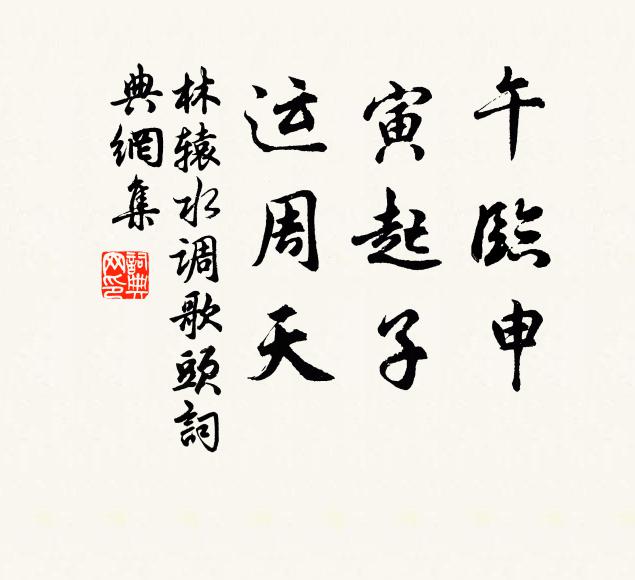 午臨申
寅起子
运周天
林辕水调歌頭詞
典網集
詞典
网印